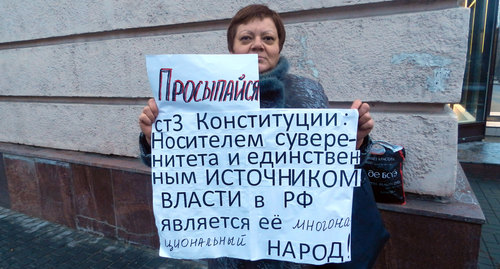 Просыпайся
ст3 Конституции:
Носителем сувере-
нитета и единствен
ным ИСТОЧНИКОМ
ВЛАСТИ в РФ
является её многона
циональный НАРОД!
де БСЭ